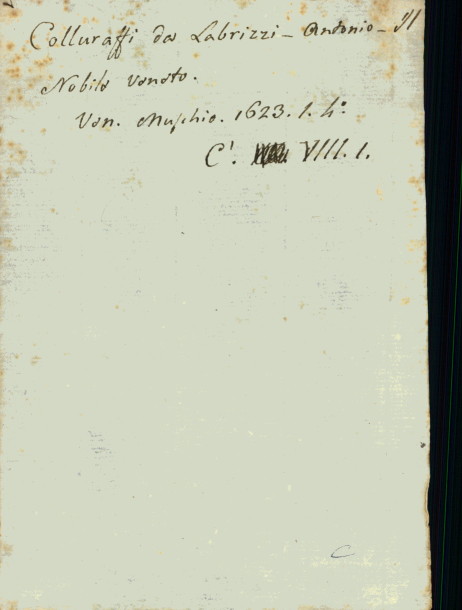 Colluraffi da Labrizzi - Antonio - Il
Nobile Veneto.
Ven. Muschio. 1623. 1. 4°
C'. VIII. 1.
C